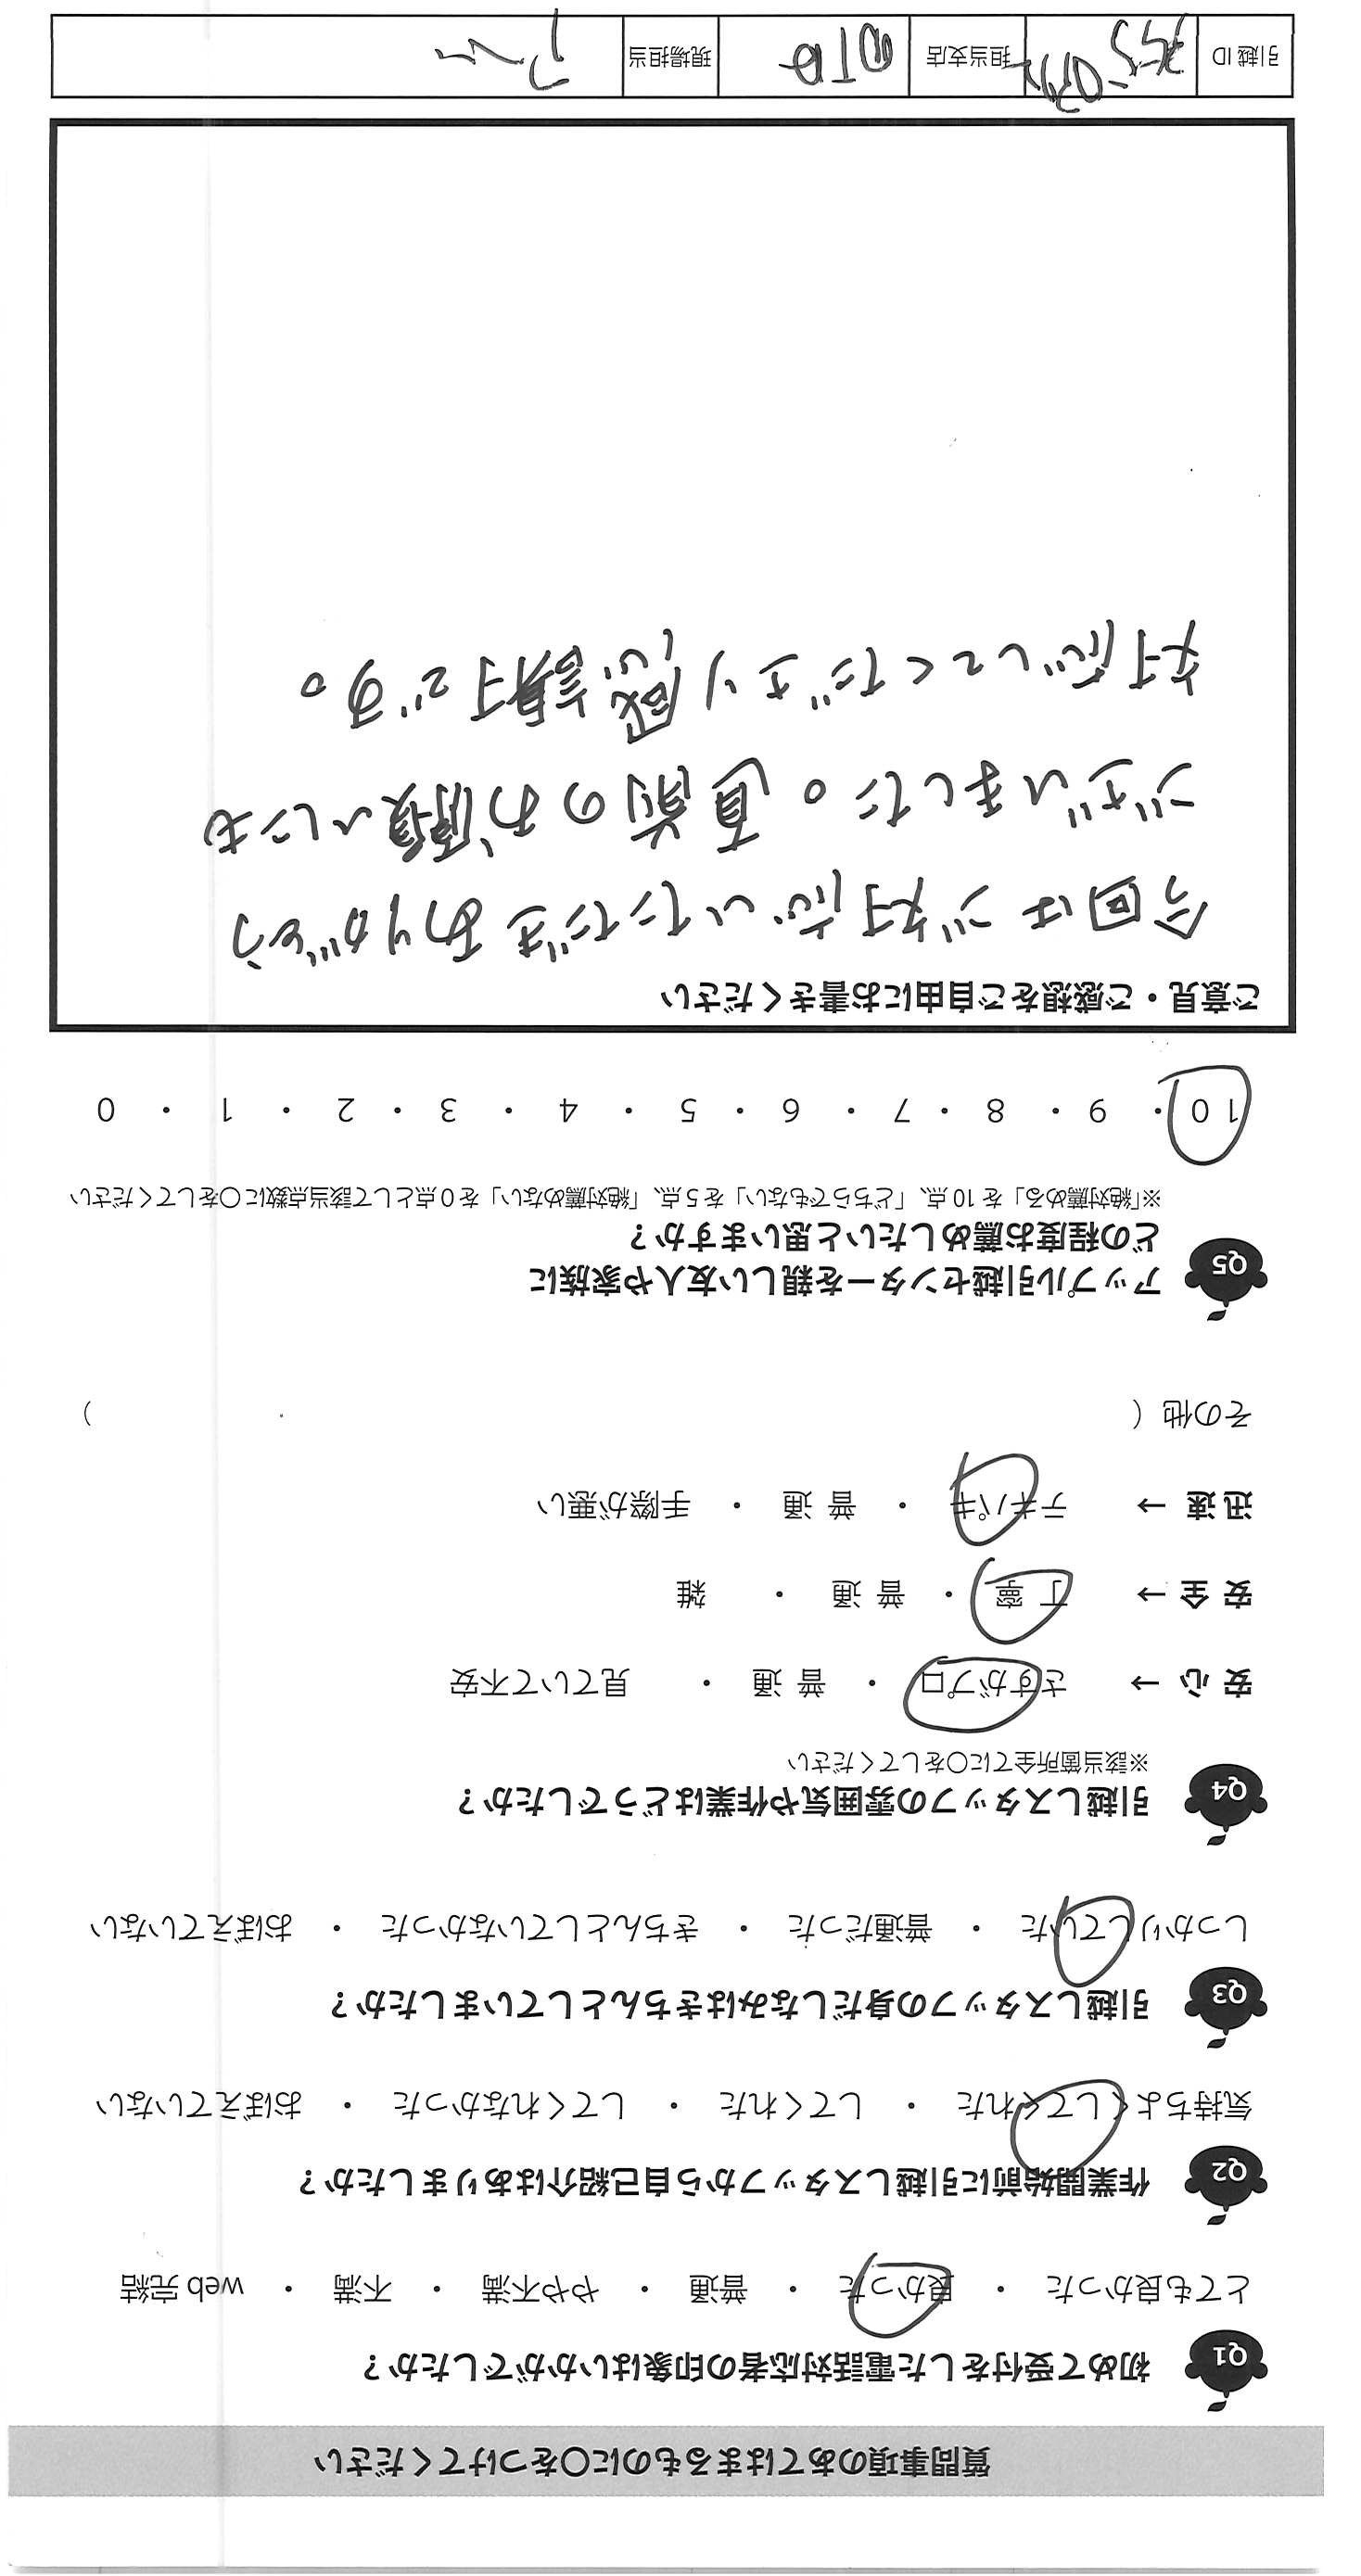 質問事項のあてはまるものに○をつけてください
Q1 初めて受付をした電話対応者の印象はいかがでしたか？
とても良かった ・ 良かった ・ 普通 ・ やや不満 ・ 不満 ・ web 完結
Q2 作業開始前に引越しスタッフから自己紹介はありましたか？
気持ちよくしてくれた ・ してくれた ・ してくれなかった ・ おぼえていない
Q3 引越しスタッフの身だしなみはきちんとしていましたか？
しっかりしていた ・ 普通だった ・ きちんとしていなかった ・ おぼえていない
Q4 引越しスタッフの雰囲気や作業はどうでしたか？
※該当箇所全てに○をしてください
安 心 → さすがプロ ・ 普 通 ・ 見ていて不安
安 全 → 丁 寧 ・ 普 通 ・ 雑
迅 速 → テキパキ ・ 普 通 ・ 手際が悪い
その他 ( )
Q5 アップル引越センターを親しい友人や家族に
どの程度お薦めしたいと思いますか？
※「絶対薦める」を 10 点、「どちらでもない」を 5 点、「絶対薦めない」を 0 点として該当点数に○をしてください
10 ・ 9 ・ 8 ・ 7 ・ 6 ・ 5 ・ 4 ・ 3 ・ 2 ・ 1 ・ 0
ご意見・ご感想をご自由にお書きください
今回はご対応いただきありがとう
ございました。直前のお願いにも
対応してくださり感謝です。
引越 ID 担当支店 町田 現場担当